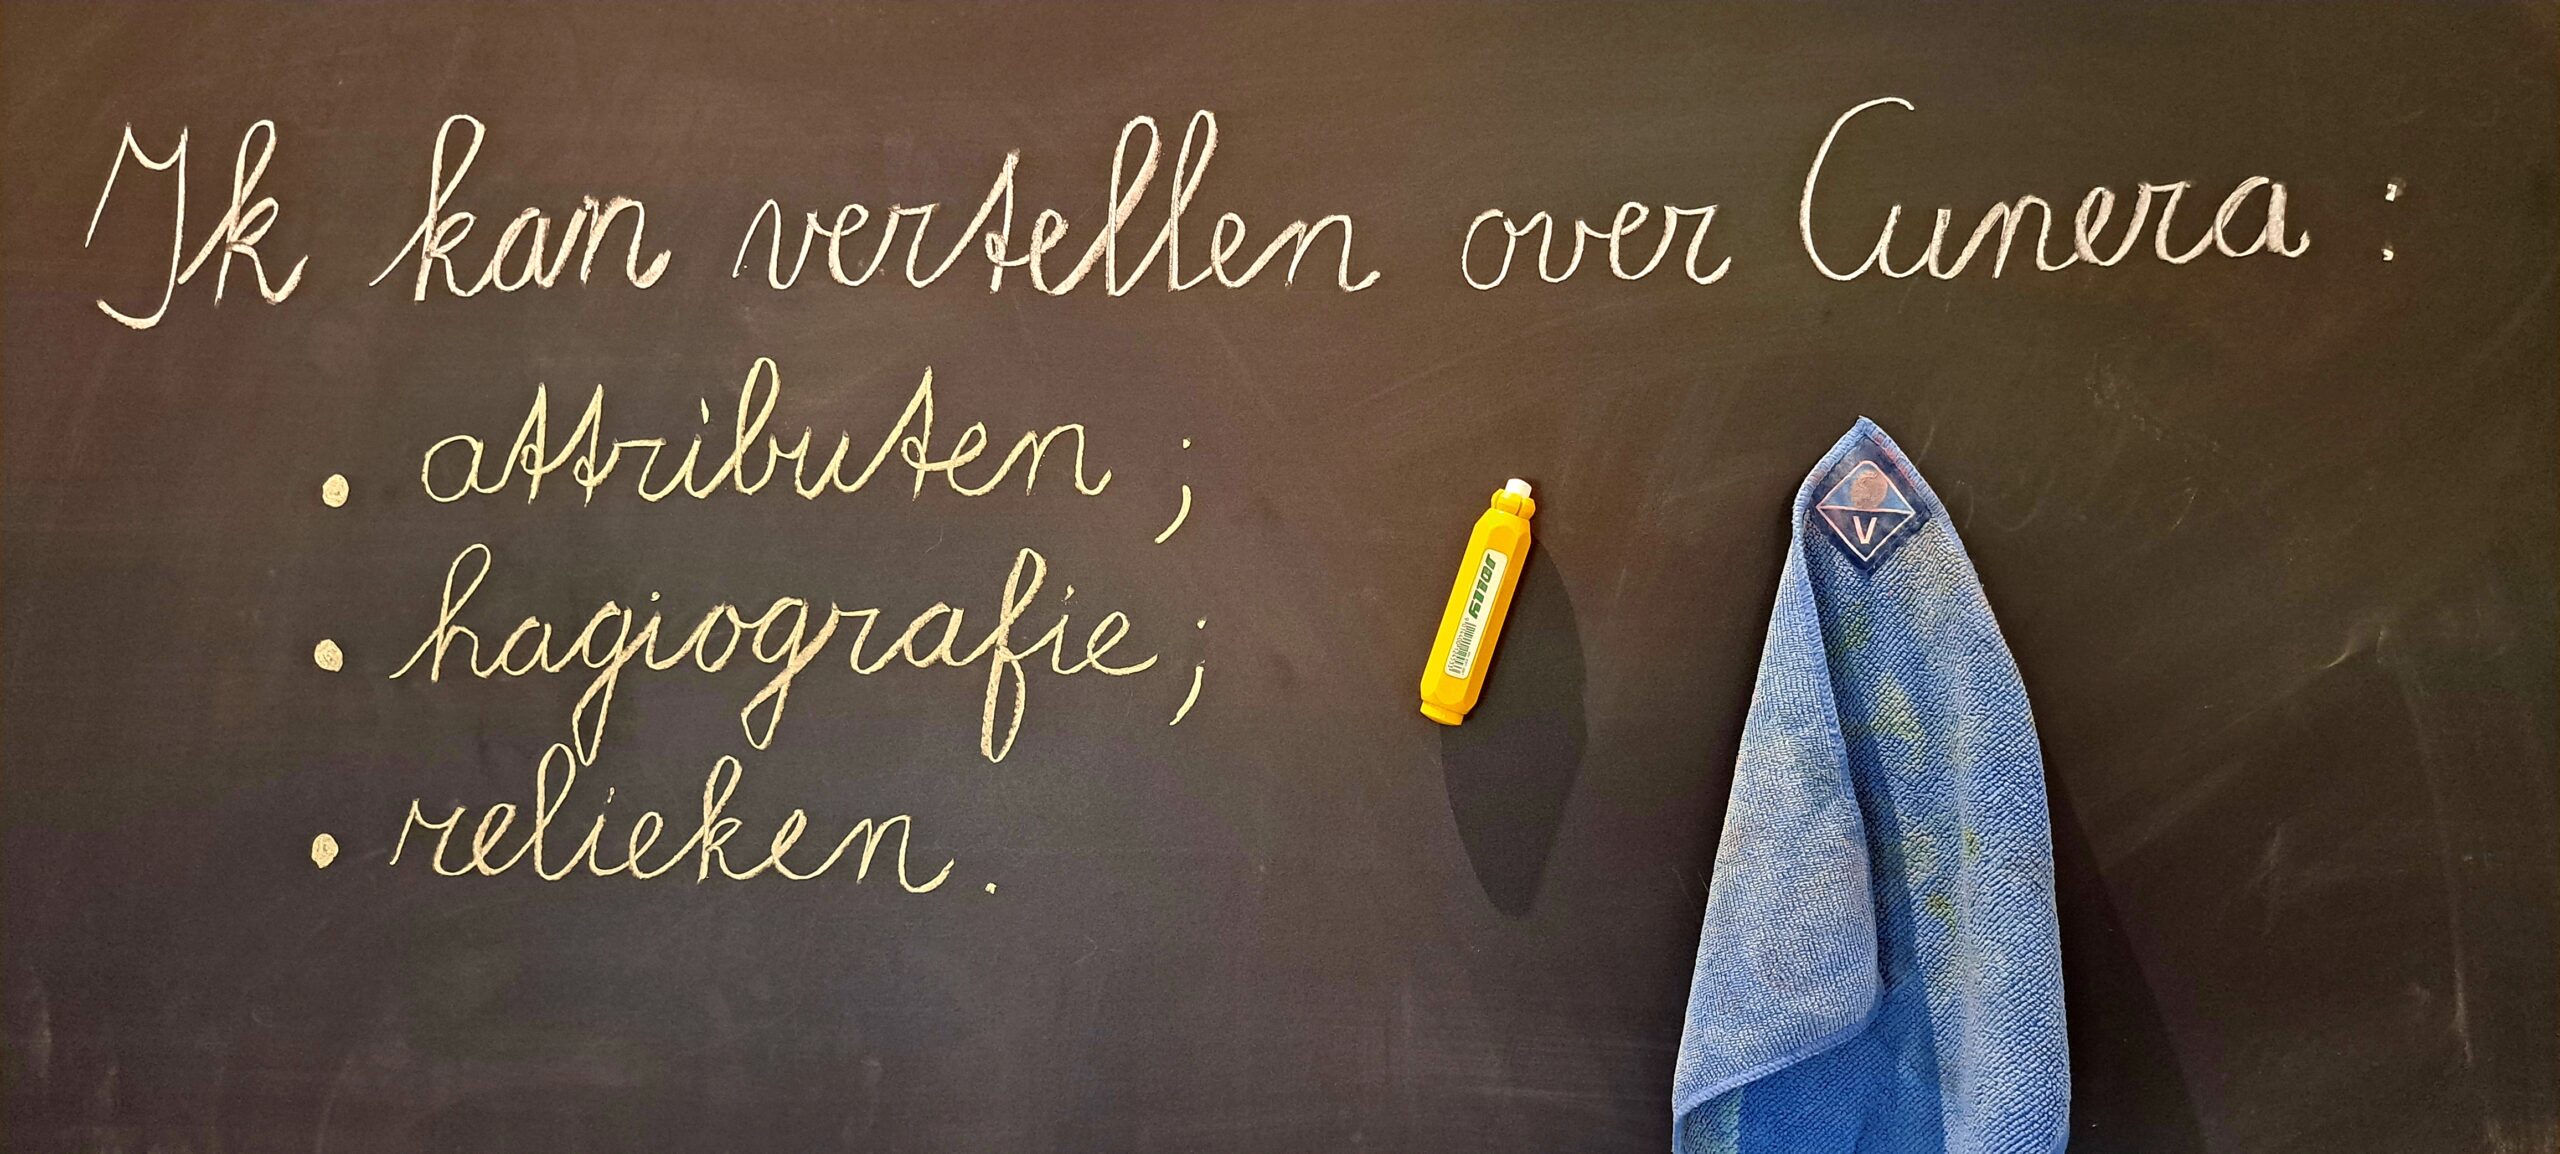 Ik kan vertellen over Cunera :
• attributen ;
• hagiografie ;
• relieken.
JOLLY
V